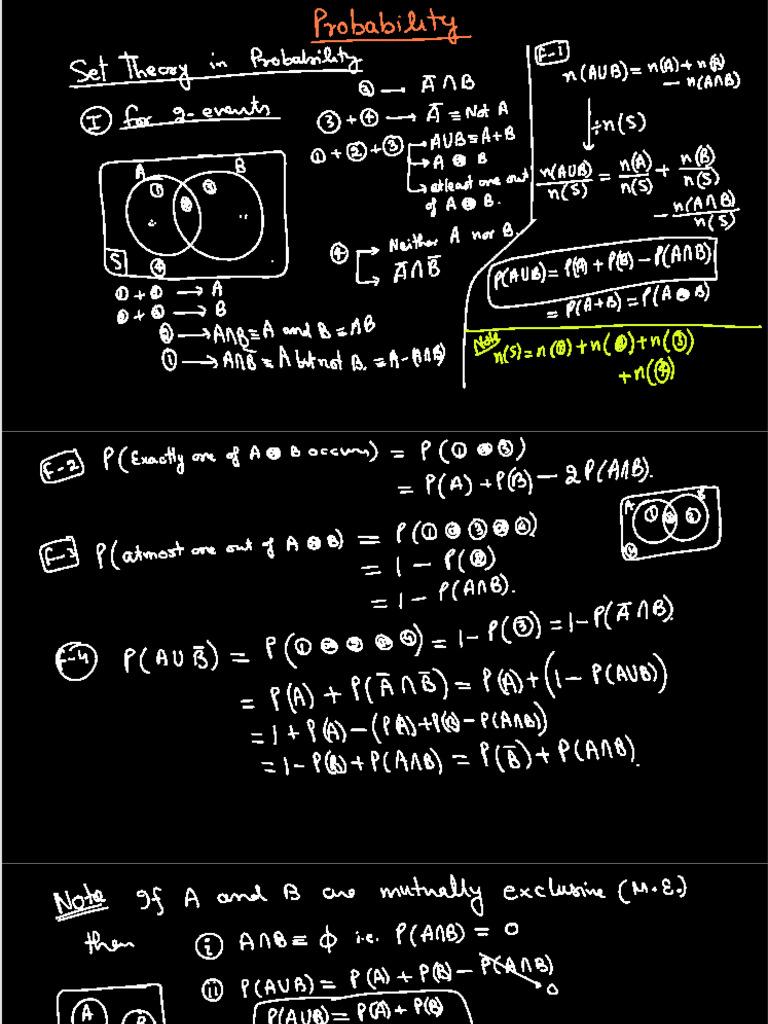 Probability
Set Theory in Probability
I for 2-events
A B
① ② ③
S ④
① + ② → A
② + ③ → B
② → A∩B ≡ A and B ≡ AB
① → A∩B̄ ≡ A but not B ≡ A-(A∩B)
③ → Ā∩B
③ + ④ → Ā ≡ Not A
① + ② + ③ → A∪B ≡ A+B
→ A or B
→ atleast one out
of A or B.
④ → Neither A nor B.
→ Ā∩B̄
F-1
n(A∪B) = n(A) + n(B)
- n(A∩B)
↓ ÷ n(S)
n(A∪B)/n(S) = n(A)/n(S) + n(B)/n(S)
- n(A∩B)/n(S)
P(A∪B) = P(A) + P(B) - P(A∩B)
= P(A+B) = P(A or B)
Note
n(S) = n(①) + n(②) + n(③)
+ n(④)
F-2 P(Exactly one of A or B occurs) = P(① or ③)
= P(A) + P(B) - 2P(A∩B).
A B
① ② ③
④
F-3 P(atmost one out of A or B) = P(① or ③ or ④)
= 1 - P(②)
= 1 - P(A∩B).
F-4 P(A∪B̄) = P(① or ② or ④) = 1-P(③) = 1-P(Ā∩B).
= P(A) + P(Ā∩B̄) = P(A) + (1 - P(A∪B))
= 1 + P(A) - (P(A) + P(B) - P(A∩B))
= 1 - P(B) + P(A∩B) = P(B̄) + P(A∩B).
Note If A and B are mutually exclusive (M.E.)
then (i) A∩B ≡ ϕ i.e. P(A∩B) = 0
(ii) P(A∪B) = P(A) + P(B) - P(A∩B) → 0
A B
P(A∪B) = P(A) + P(B)